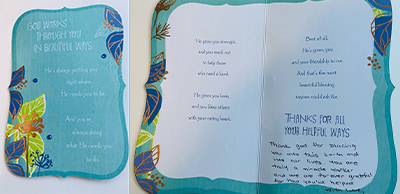 GOD WORKS
THROUGH YOU
IN BEAUTIFUL WAYS
He's always putting you
right where
He needs you to be.
And you're
always doing
what He needs you
to do.
He gives you strength
and you reach out
to help those
who need a hand.
He gives you love,
and you bless others
with your caring heart.
Best of all,
He's given you
and your friendship to me.
And that's the most
beautiful blessing
anyone could ask for.
THANKS FOR ALL
YOUR HELPFUL WAYS
Thank God for placing
you into this Earth and
into our lives. You are
truly a miracle worker
and we are forever grateful
for how you've helped